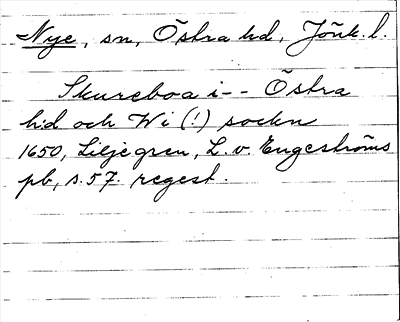 Nye, sn, Östra hd, Jönk. l.
Skureboa i-- Östra
h:d och Wi (!) sockn
1650, Liljegren, L. v. Engeströms
pb, s. 57. regest.